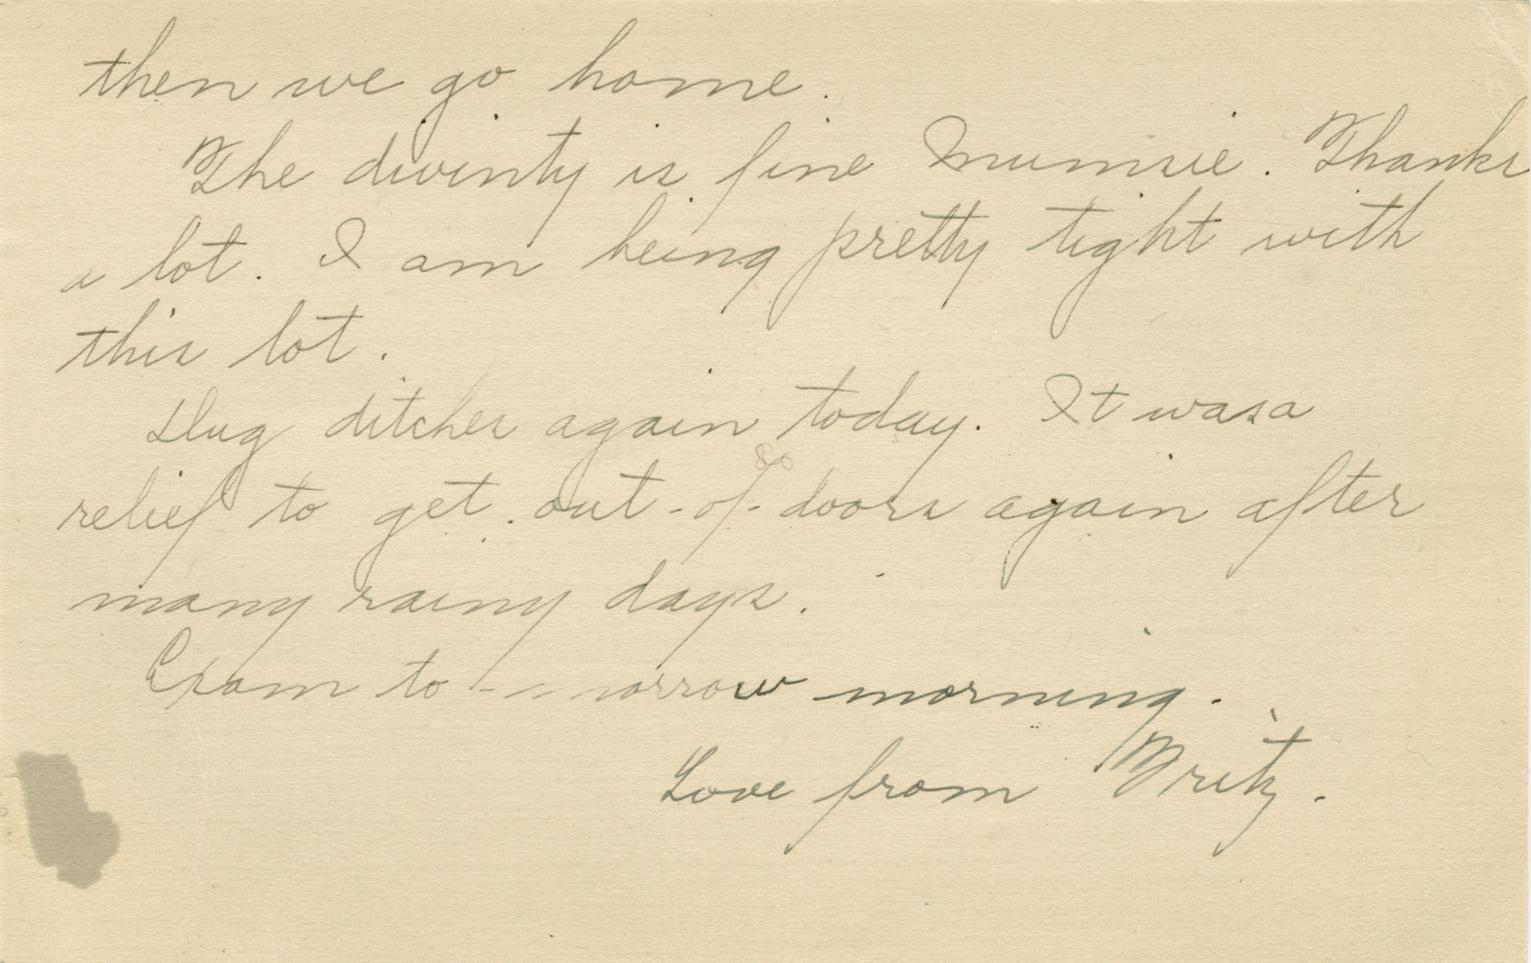 then we go home.
The divinty is fine Mumsie. Thanks
a lot. I am being pretty tight with
this lot.
Dug ditches again today. It was a
80
relief to get out-of-doors again after
many rainy days.
Exam to-morrow morning.
Love from Fritz.